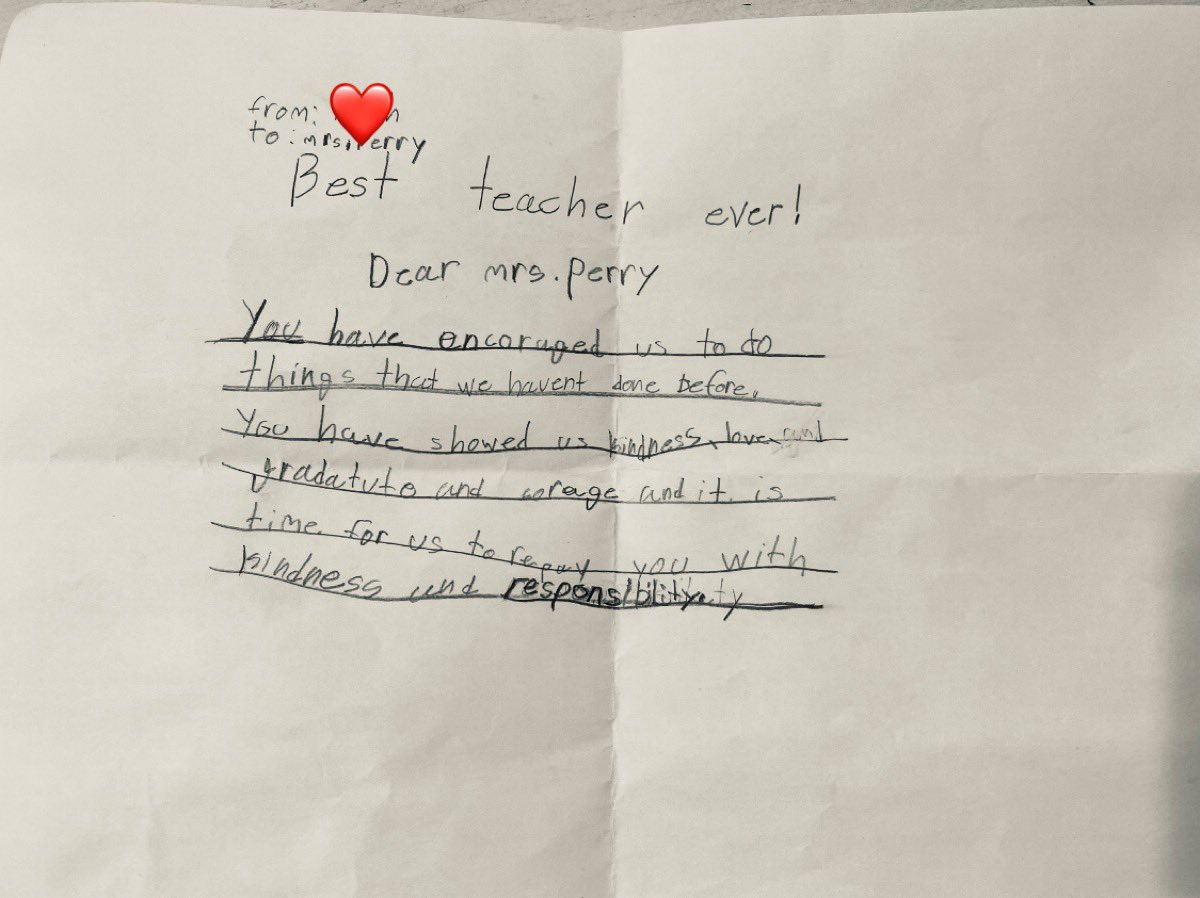 from:
to: mrs. Perry
Best teacher ever!
Dear mrs. perry
You have encoraged us to do
things that we havent done before.
You have showed us kindness, love, and
gradatute and corage and it is
time for us to repay you with
kindness and responsibility